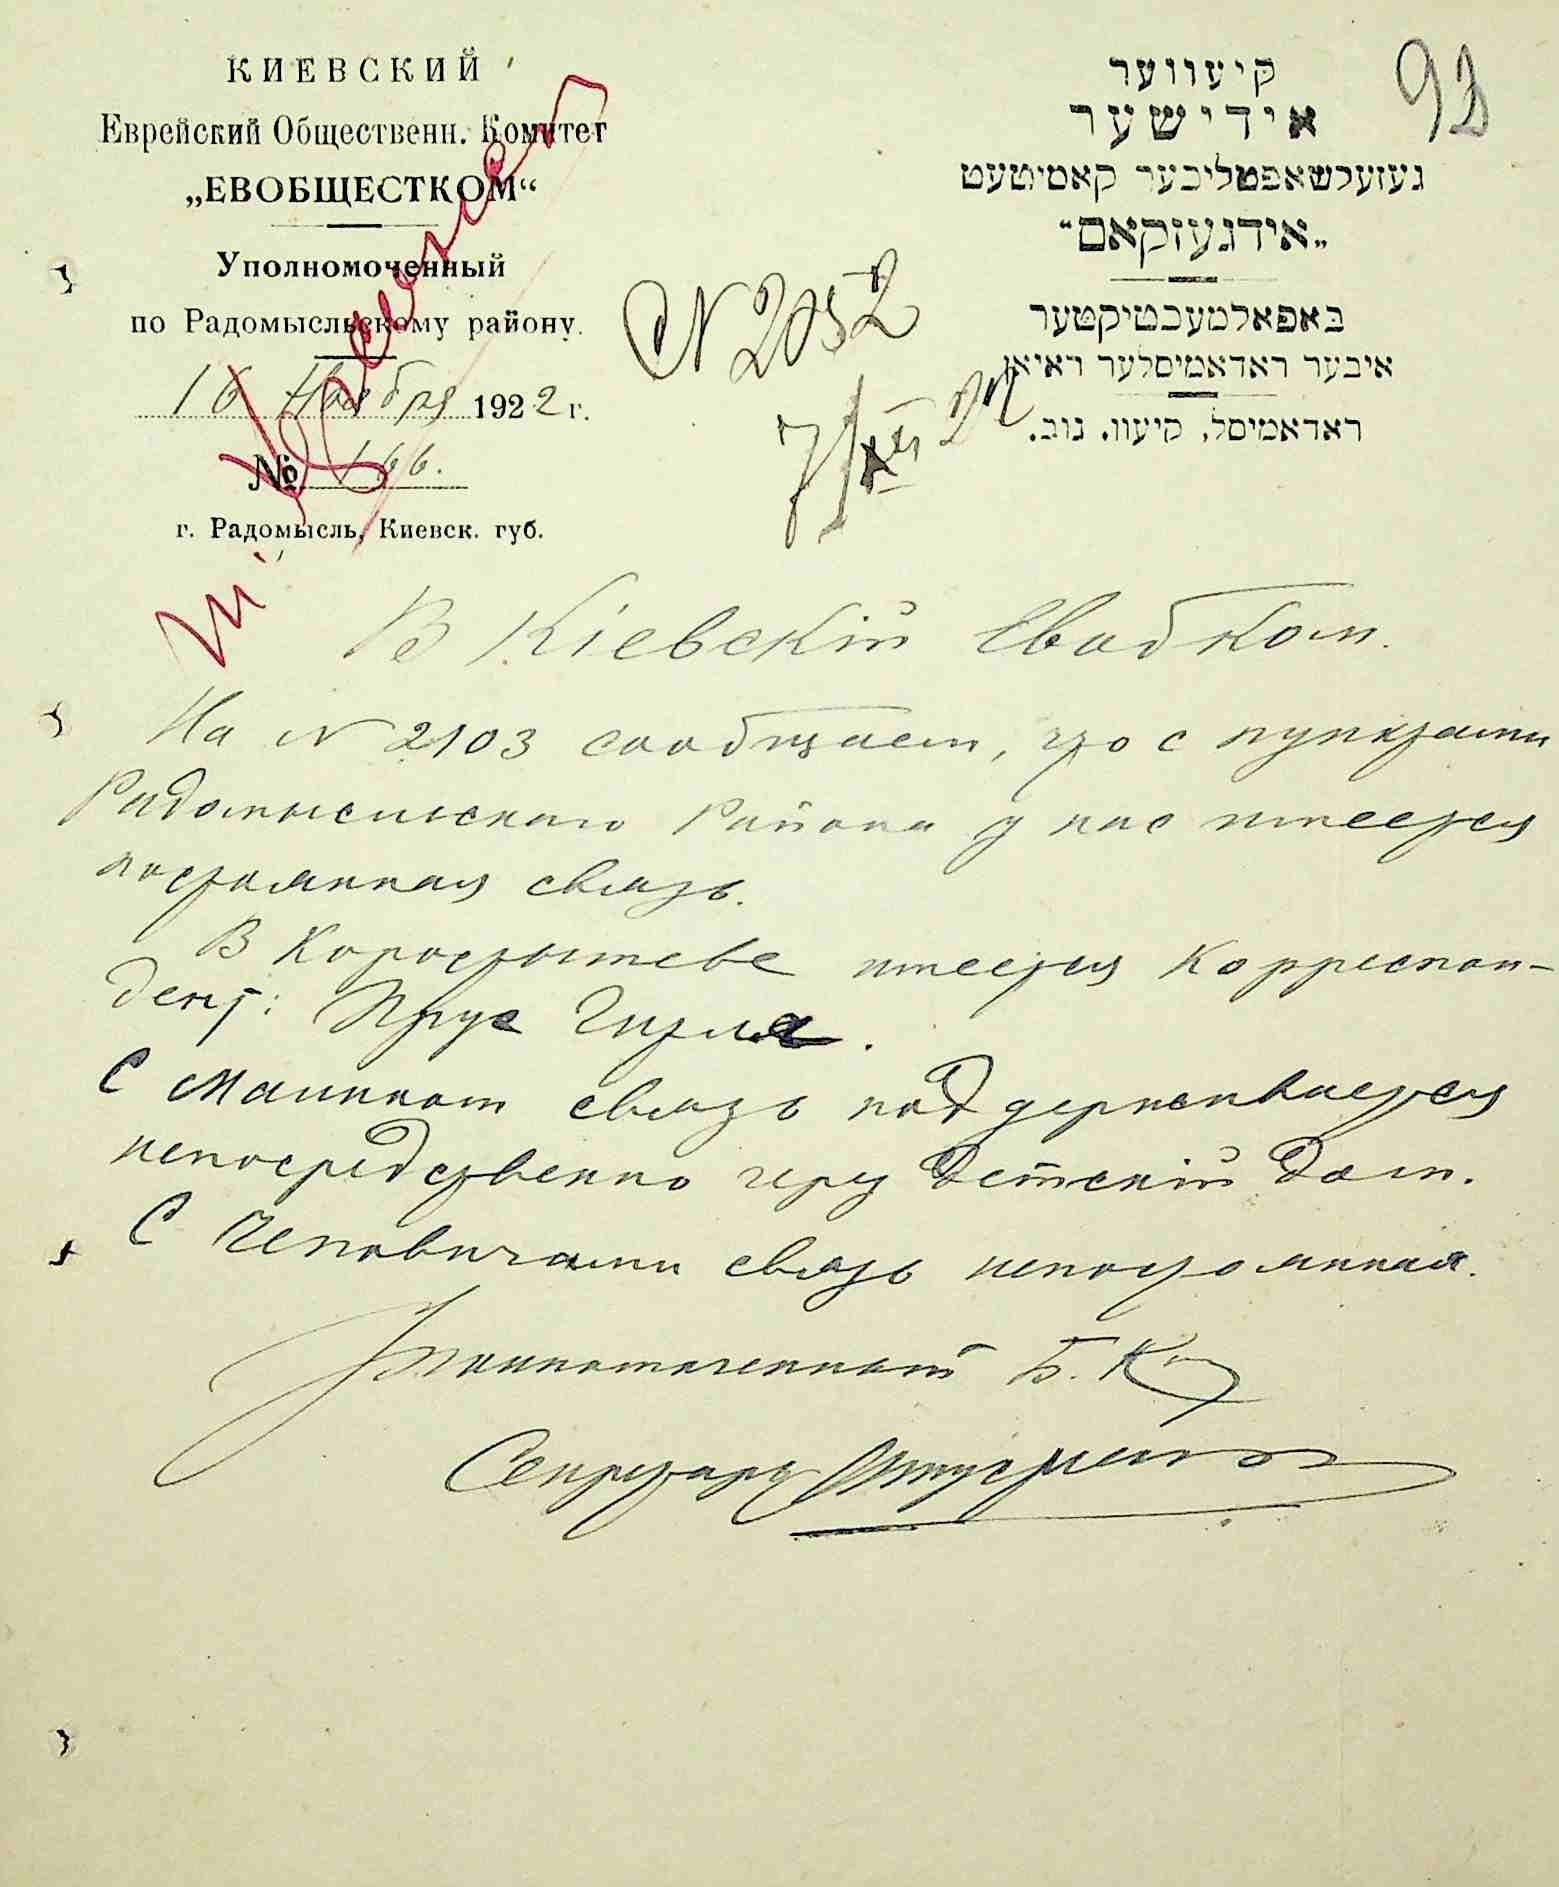 КИЕВСКИЙ
Еврейский Общественн. Комитет
„ЕВОБЩЕСТКОМ“
Уполномоченный
по Радомысльскому району.
16 Ноября 1922 г.
№ 166.
г. Радомысль, Киевск. губ.
קיעווער
אידישער
געזעלשאפטליכער קאמיטעט
„אידגעזקאם“
באפאלמעכטיקטער
איבער ראדאמיסלער ראיאן
ראדאמיסל, קיעוו. גוב.
93
N 2052
7/XII 22
В Кіевскій Евобком.
На N 2103 сообщаем, что с пунктами
Радомысльскаго Района у нас имеется
постоянная связь.
В Коростышеве имеется Корреспон-
дент: Прус Гизля.
С Малином связь поддерживается
непосредственно через Детскій Дом.
С Чеповичами связь непостоянная.
Уполномоченный Б.
Секретарь